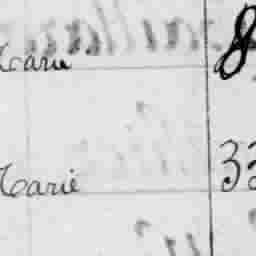 Marie 8
Marie 33